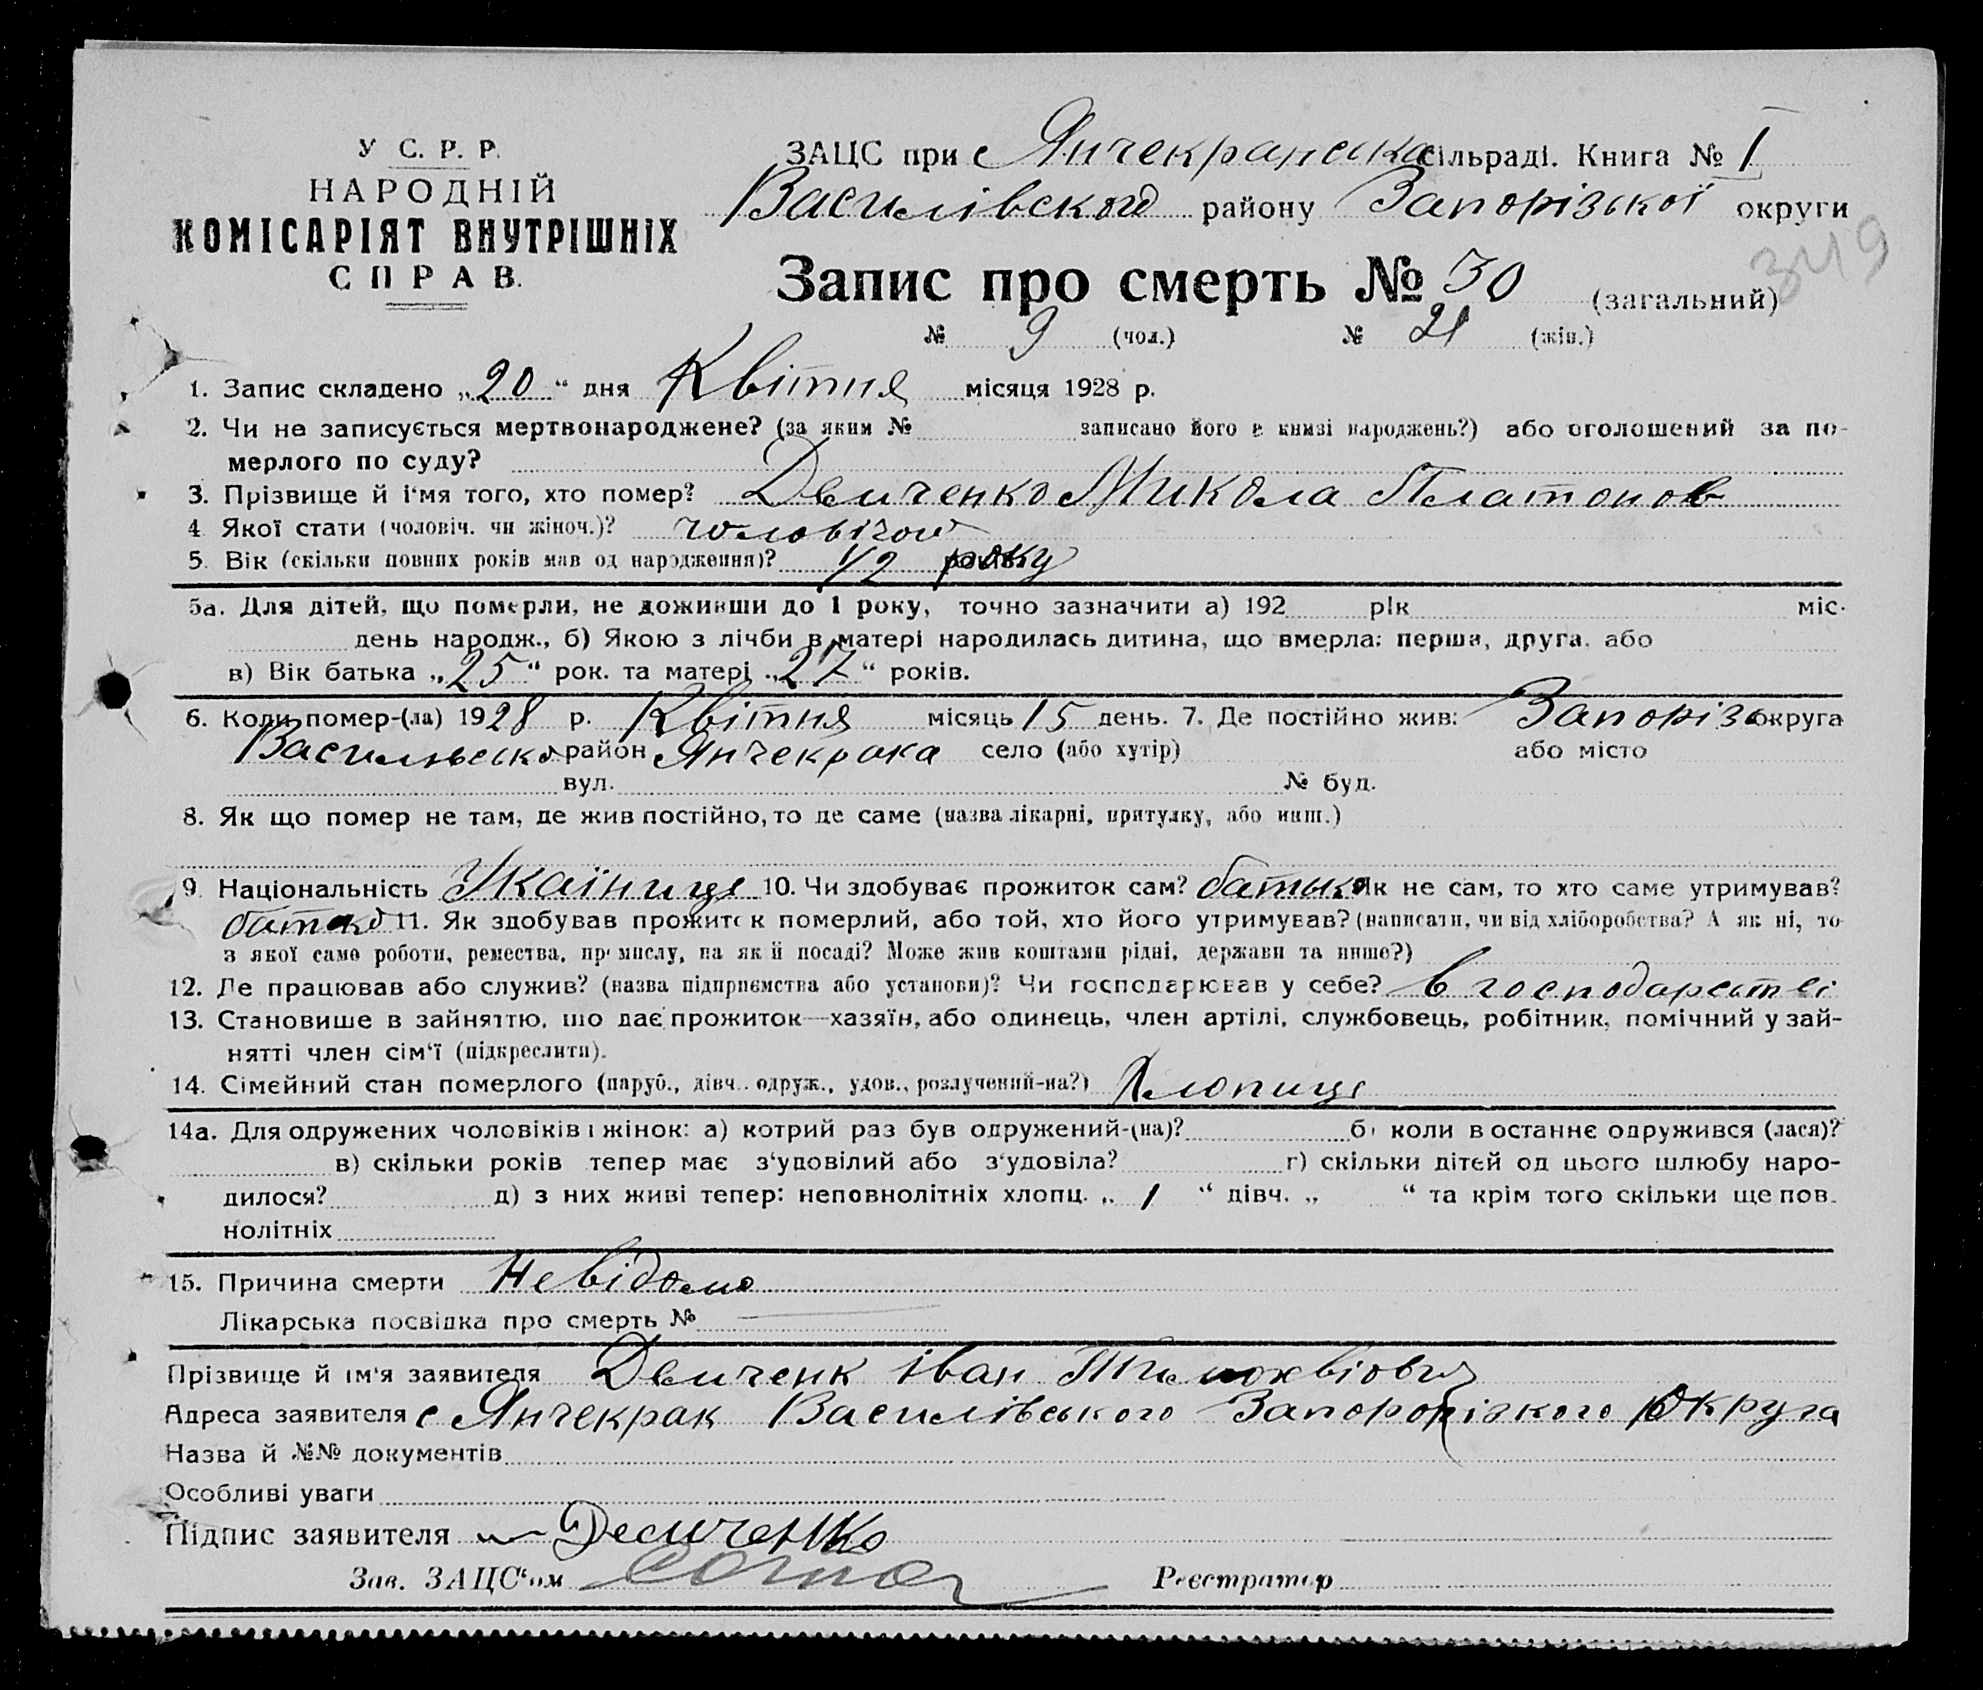 У С. Р. Р.
НАРОДНІЙ
КОМІСАРІЯТ ВНУТРІШНІХ
СПРАВ.
ЗАЦС при Янчекранська сільраді. Книга № I
Василівского району Запорізької округи
349
Запис про смерть № 30 (загальний)
№ 9 (чол.) № 21 (жін.)
1. Запис складено „20“ дня Квітня місяця 1928 р.
2. Чи не записується мертвонароджене? (за яким № записано його в книзі народжень?) або оголошений за по-
мерлого по суду?
3. Прізвище й ім'я того, хто помер? Демченко Микола Платонов
4 Якої стати (чоловіч. чи жіноч.)? чоловічой
5. Вік (скільки повних років мав од народження)? 1/2 року
5а. Для дітей, що померли, не доживши до 1 року, точно зазначити а) 192 рік міс.
день народж., б) Якою з лічби в матері народилась дитина, що вмерла: перша, друга, або
в) Вік батька „25“ рок. та матері „27“ років.
6. Коли помер-(ла) 1928 р. Квітня місяць 15 день. 7. Де постійно жив: Запоріз округа
Васильвсько район Янчекрака село (або хутір) або місто
вул. № буд.
8. Як що помер не там, де жив постійно, то де саме (назва лікарні, притулку, або инш.)
9. Національність Украінице 10. Чи здобуває прожиток сам? батько Як не сам, то хто саме утримував?
батько 11. Як здобував прожиток померлий, або той, хто його утримував? (написати, чи від хліборобства? А як ні, то
з якої само роботи, ремества, промислу, на якій посаді? Може жив коштами рідні, держави та инше?)
12. Де працював або служив? (назва підприємства або установи)? Чи господарював у себе? в господарстві
13. Становище в зайняттю, що дає прожиток—хазяїн, або одинець, член артілі, службовець, робітник, помічний у зай-
нятті член сім'ї (підкреслити).
14. Сімейний стан померлого (паруб., дівч., одруж., удов., розлучений-на?) Хлопице
14а. Для одружених чоловіків і жінок: а) котрий раз був одружений-(на)? б) коли в останнє одружився (лася)?
в) скільки років тепер має з'удовілий або з'удовіла? г) скільки дітей од цього шлюбу наро-
дилося? д) з них живі тепер: неповнолітніх хлопц. „ 1 “ дівч. „ “ та крім того скільки ще пов.
нолітніх
15. Причина смерти Невідомо
Лікарська посвідка про смерть №
Прізвище й ім'я заявителя Демченк Іван
Адреса заявителя с Янчекрак Василівського Запорорізкого Округа
Назва й №№ документів
Особливі уваги
Підпис заявителя Демченко
Зав. ЗАЦС'ом
Реєстратор